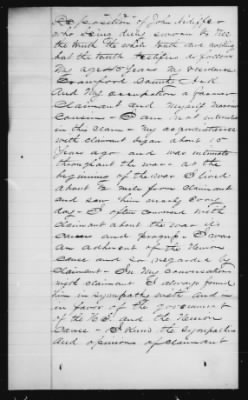 Deposition of John
who being duly sworn by me
the truth the whole truth and nothing
but the truth testifies as follows
My age is years My residence
Crawford County
And my occupation a farmer
Claimant and myself
Cousins - I am not interested
in this claim - My acquaintance
with claimant began about
years ago and was intimate
throughout the war - at the
beginning of the war I lived
about 2 mile from claimant
and saw him nearly every
day - I often conversed with
claimant about the war its
causes and progress - I was
an adherent of the Union
cause and so regarded by
claimant - In my conversations
with claimant I always found
him in sympathy with and
in favor of the government
of the U.S. and the Union
Cause - I know the sympathies
and opinions of claimant